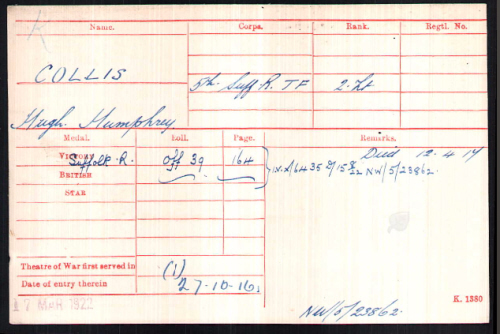 Name. Corps. Rank. Regtl. No.
COLLIS
5th Suff R. TF 2. Lt
Hugh Humphrey
Medal. Roll. Page. Remarks.
Victory Off 39 164 Died 12.4.17
Suffolk R.
British NW/5/23862
Star
Theatre of War first served in (1)
Date of entry therein 27-10-16.
17 MAR 1922 K. 1380
NW/5/23862